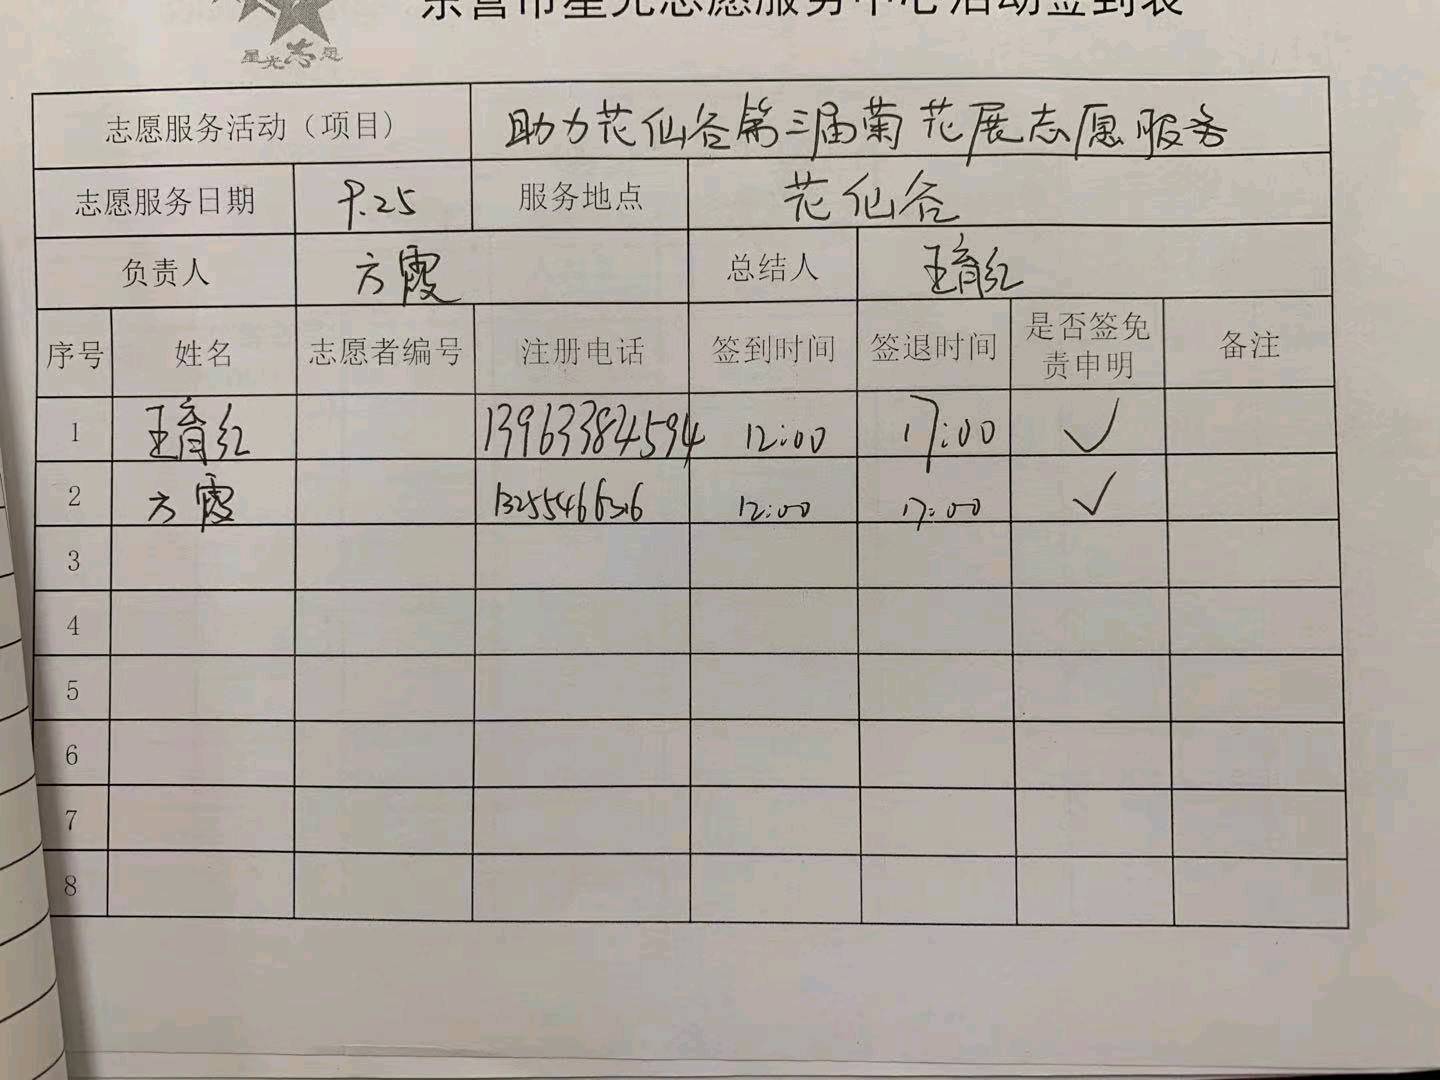 东营市星光志愿服务中心活动签到表
星光志愿
志愿服务活动（项目） 助力花仙谷第三届菊花展志愿服务
志愿服务日期 9.25 服务地点 花仙谷
负责人 方霞 总结人 王育红
序号 姓名 志愿者编号 注册电话 签到时间 签退时间 是否签免责申明 备注
1 王育红 13963384594 12:00 17:00 ✓
2 方霞 12:00 17:00 ✓
3
4
5
6
7
8